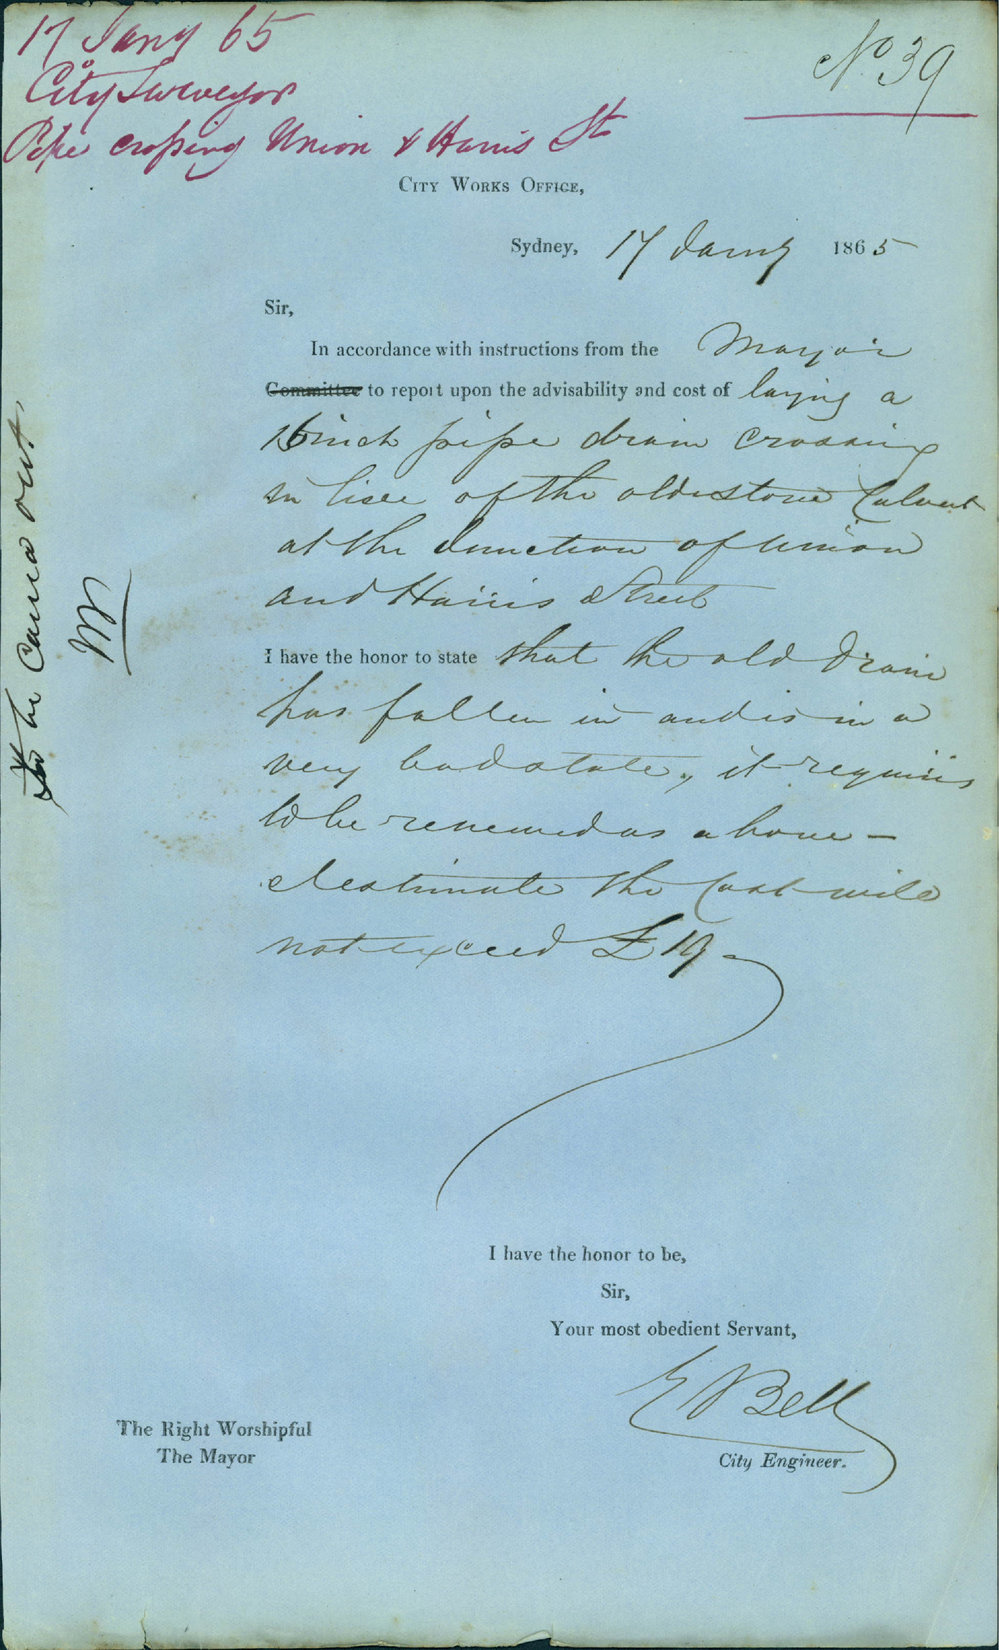 17 Jany 65
City Surveyor
Pipe crossing Union & Harris Sts
No 39
City Works Office,
Sydney, 17 Jany 1865
Sir,
In accordance with instructions from the Mayor
Committee to report upon the advisability and cost of laying a
16 inch pipe drain crossing
in lieu of the old stone Culvert
at the Junction of Union
and Harris Street
I have the honor to state that the old drain
has fallen in and is in a
very bad state, it requires
to be renewed as above —
estimate the Cost will
not exceed £19
To be carried out.
I have the honor to be,
Sir,
Your most obedient Servant,
E Bell
City Engineer.
The Right Worshipful
The Mayor